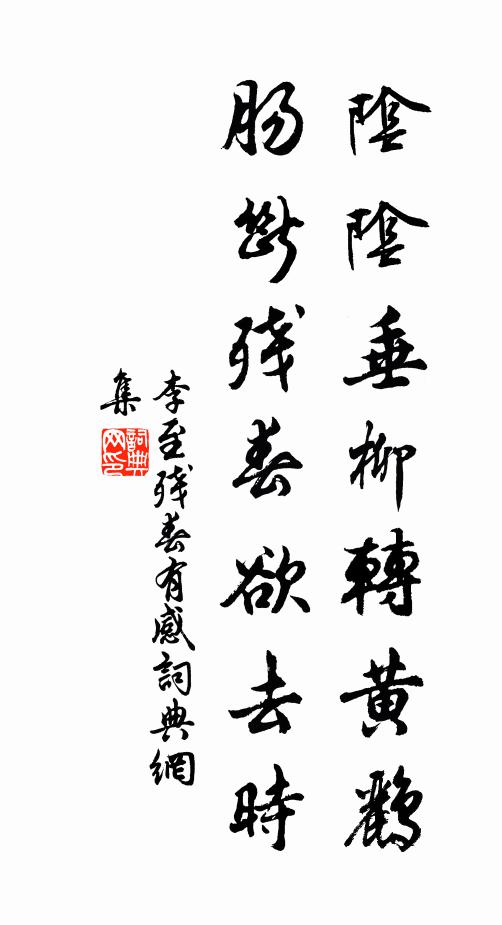 陰陰垂柳轉黃鸝
腸斷殘春欲去時
李至殘春有感詞典網
集
詞典
网印